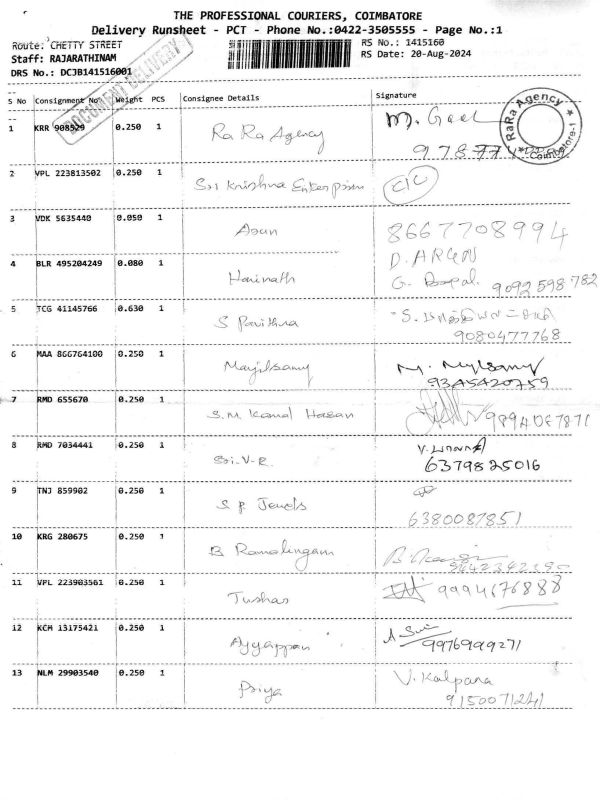 THE PROFESSIONAL COURIERS, COIMBATORE
Delivery Runsheet - PCT - Phone No.:0422-3505555 - Page No.:1
Route: CHETTY STREET
RS No.: 1415160
Staff: RAJARATHINAM
RS Date: 20-Aug-2024
DRS No.: DCJB141516001
DOCUMENT DELIVERY
S No Consignment No Weight PCS Consignee Details Signature
1 KRR 908529 0.250 1 Ra Ra Agency M. Goel
RaRa Agency Coimbatore-1
2 VPL 223813502 0.250 1 Sri Krishna Enterprises
3 VDK 5635440 0.050 1 Arun 8667708994
D. ARUN
4 BLR 495204249 0.080 1 Harinath G. Gopal. 9092598782
5 TCG 41145766 0.630 1 S Pavithra
9080477768
6 MAA 866764100 0.250 1 Mayilsamy M. Mylsamy
9345420759
7 RMD 655670 0.250 1 S.M. Kamal Hasan 9894067871
8 RMD 7034441 0.250 1 Sri.V.R.
6379825016
9 TNJ 859902 0.250 1 S P Jewels
6380087851
10 KRG 280675 0.250 1 B Ramalingam
11 VPL 223903561 0.250 1 Tushar 9994676888
12 KCM 13175421 0.250 1 Ayyappan
9976999271
13 NLM 29903540 0.250 1 Priya V. Kalpana
9150071241